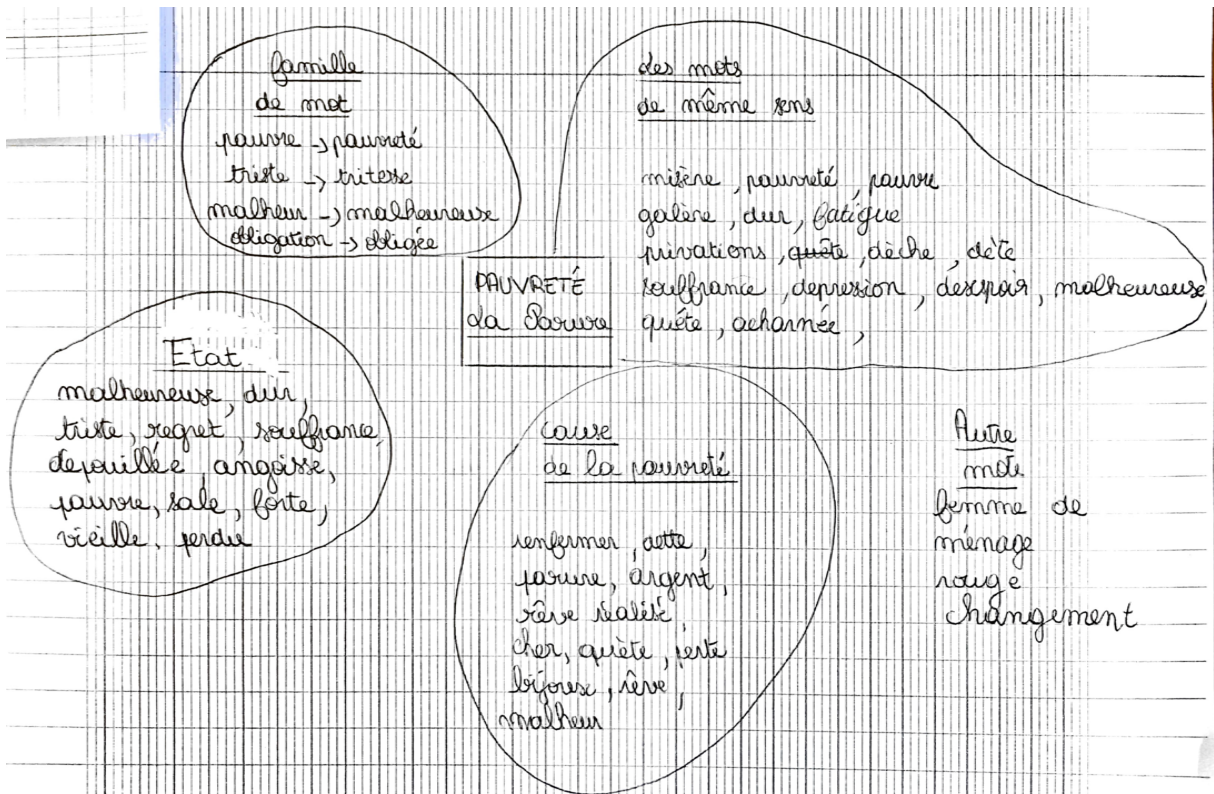 famille
de mot
pauvre → pauvreté
triste → tritesse
malheur → malheureuse
obligation → obligée
des mots
de même sens
misère, pauvreté, pauvre
galère, dur, fatigue
privations, quête, dèche, dète
souffrance, depression, despoir, malheureuse
quête, acharnée,
PAUVRETÉ
La Parure
Etat
malheureuse, dur,
triste, regret, souffrance,
depouillée, angoisse,
pauvre, sale, forte,
vieille, perdu
cause
de la pauvreté
renfermer, dette,
parure, argent,
rêve réalité
cher, quète, perte
bijoux, rêve,
malheur
Autre
mots
femme de
ménage
rouge
changement